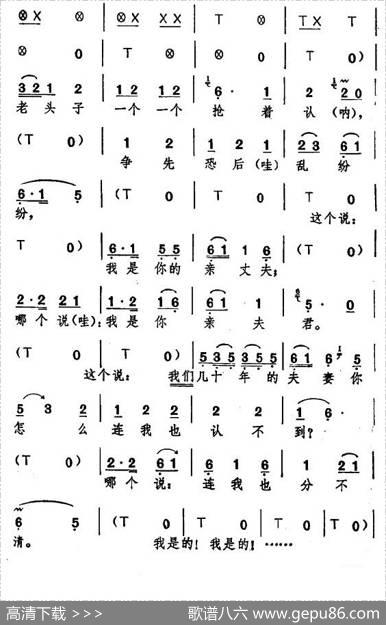 ⊗X ⊗ | ⊗X XX | T ⊗ | TX T
⊗ 0 | T ⊗ | ⊗ 0 | T 0)
321 2 | 12 12 | 6· 1 | 2 20
老头子 一个 一个 抢 着 认 (呐),
(T 0) | 1 2 | 1 2 1 | 23 61
争 先 恐 后 (哇) 乱 纷
6·1 5 | (T 0 | T 0 | T 0
纷, 这个说:
T 0) | 6·1 55 | 61 1 6 | (T 0)
我是 你的 亲 丈 夫;
2·2 21 | 1·2 16 | 61 1 | 5· 0
哪个 说(哇): 我是 你 亲 夫 君。
(T 0 | T 0) | 535 355 | 61 6 1 5
这个说: 我们几十 年 的 夫 妻 你
5 3 2 | 1 2 2 | 2 2 | 1 6·
怎 么 连 我 也 认 不 到?
(T 0) | 2·2 61 | 6 1 6 | 1 21
哪个 说: 连 我 也 分 不
6 5 | (T 0 | T 0 | T 0 | T 0)
清。 我是的! 我是的! ……
高清下载 >>> 歌谱八六 www.gepu86.com